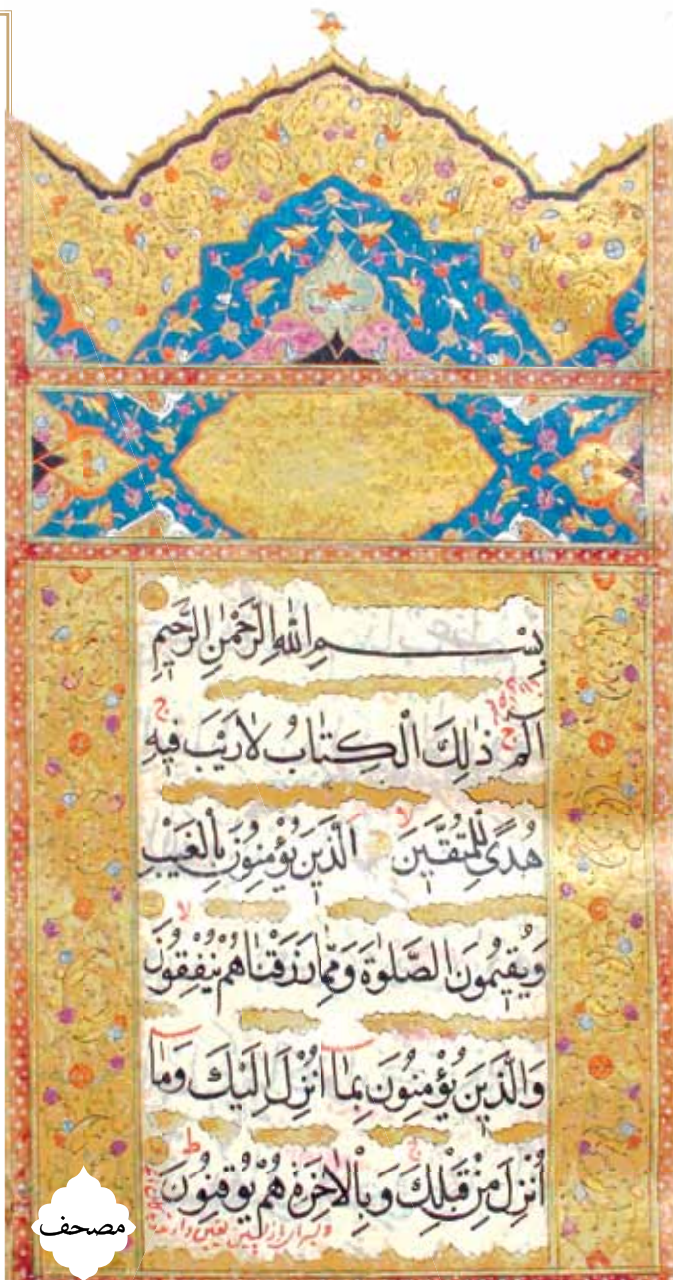 بِسْمِ اللهِ الرَّحْمٰنِ الرَّحِيمِ
الٓمٓ ج ذٰلِكَ الْكِتَابُ لَارَيْبَ فِيهِ ج
هُدًى لِلْمُتَّقِينَ لا اَلَّذِينَ يُؤْمِنُونَ بِالْغَيْبِ
وَيُقِيمُونَ الصَّلٰوةَ وَمِمَّا رَزَقْنَاهُمْ يُنْفِقُونَ لا
وَالَّذِينَ يُؤْمِنُونَ بِمَا اُنْزِلَ اِلَيْكَ وَمَا
اُنْزِلَ مِنْ قَبْلِكَ ج وَبِالْاٰخِرَةِ هُمْ يُوقِنُونَ ط
مصحف